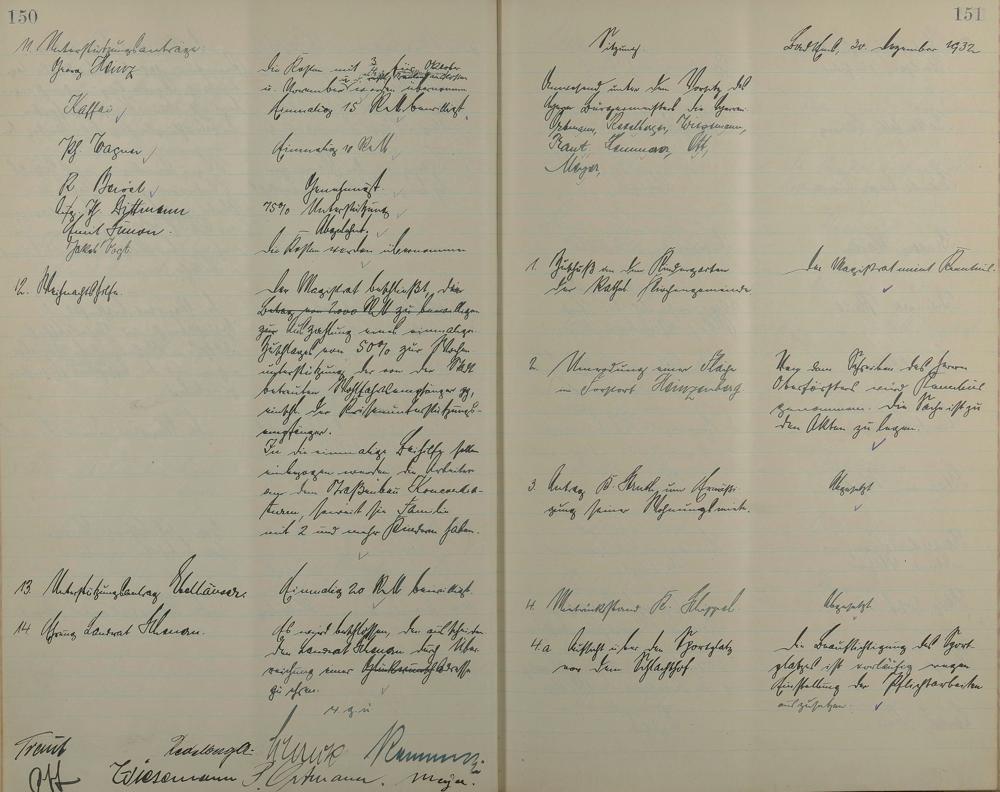 150
11. Unterstützungsanträge
Georg Heinz
Die Kosten mit für Oktober
u. November werden übernommen
Kaffai
Einmalig 15 RM bewilligt.
Ph. Wagner
Einmalig 10 RM
R
Genehmigt.
Dittmann
75% Unterstützung
Emil Simon.
Abgelehnt.
Jakob Vogt.
Die Kosten werden übernommen
12. Weihnachtshilfe.
Der Magistrat beschließt, den
Betrag von RM zu bewilligen
zur Auszahlung eines einmaligen
Zuschlages von 50% zur Wochen
unterstützung der von der Stadt
betreuten Wohlfahrtsempfänger
einschl. der Krisenunterstützungs-
empfänger.
In die einmalige Beihilfe sollen
einbezogen werden die Arbeiter
an dem Straßenbau Concordia-
turm, soweit sie Familie
mit 2 und mehr Kindern haben.
13. Unterstützungsantrag
Einmalig 20 RM bewilligt.
14 Ehrung Landrat
Es wird beschlossen, den ausscheiden
den Landrat durch Über
reichung einer
zu ehren.
v. g. u.
Treut
Ott Wiesemann P. Ortmann. Meyer.
151
Sitzung
Bad Ems, 30. Dezember 1932
Anwesend unter dem Vorsitz des
Herrn Bürgermeisters die Herren
Ortmann, Wiesemann,
Ott,
Meyer,
1. Zuschuß an den Kindergarten
der Kathol. Kirchengemeinde
Der Magistrat nimmt Kenntnis.
2. einer Fläche
im Forstort Heinzenberg
Von dem Schreiben des Herrn
Oberförsters wird Kenntnis
genommen. Die Sache ist zu
den Akten zu legen.
3. Antrag K. um Ermäßi-
gung seiner Wohnungsmiete.
Abgesetzt
4. Mietrückstand K.
Abgesetzt
4a Aufsicht über den Sportplatz
vor dem Schlachthof
Die Beaufsichtigung des Sport
platzes ist vorläufig wegen
Einstellung der Pflichtarbeiten
auszusetzen.